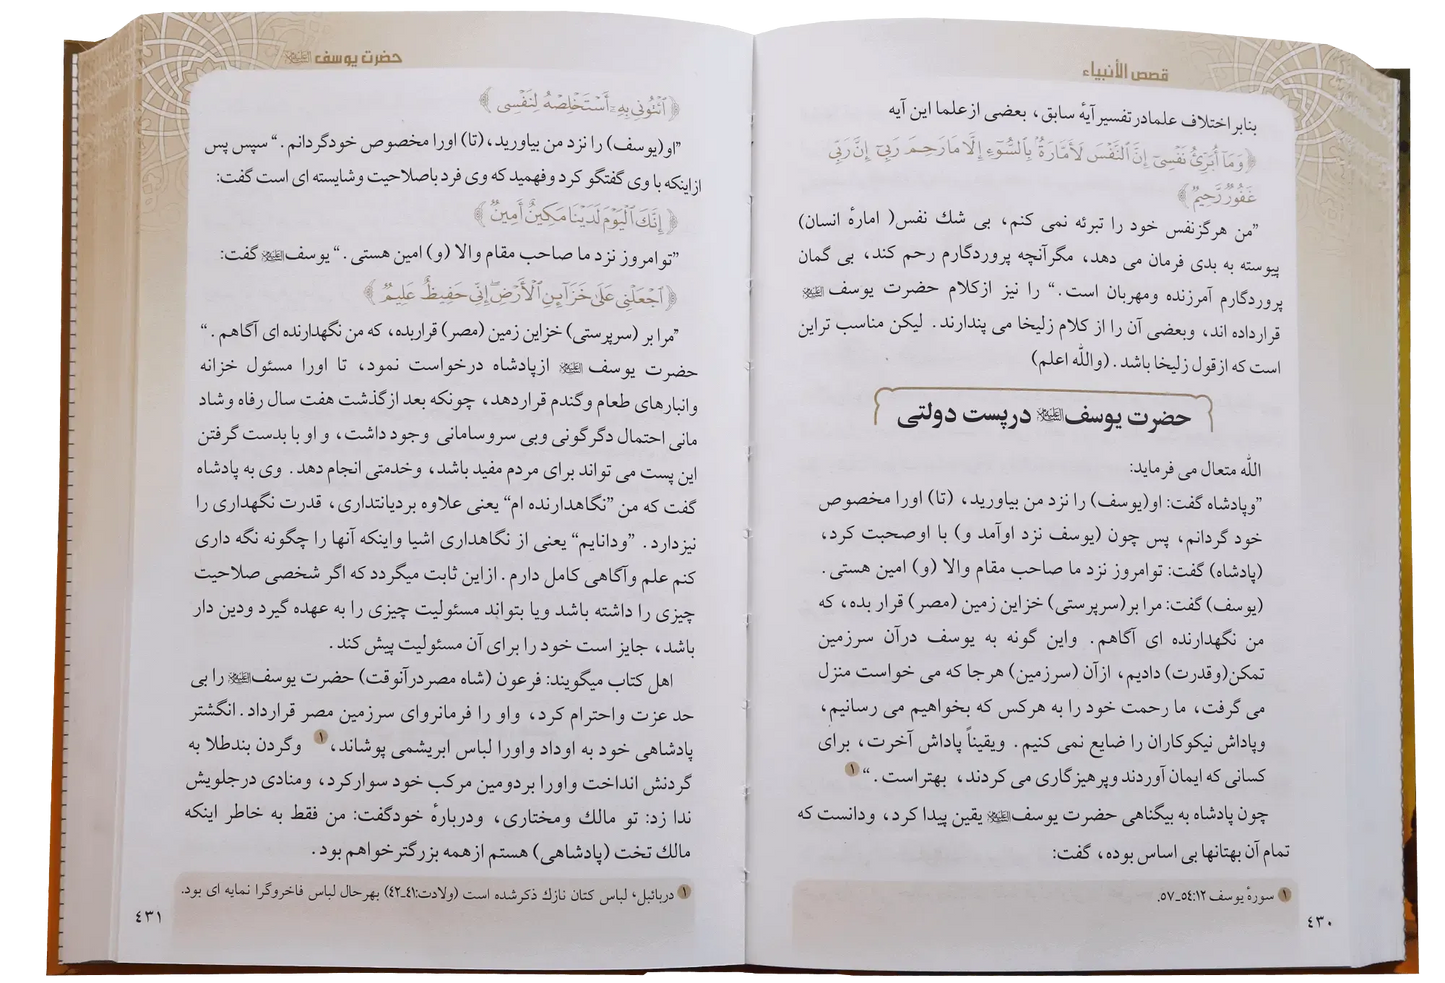 قصص الأنبیاء
بنابر اختلاف علمادر تفسیر آیهٔ سابق، بعضی از علما این آیه
﴿وَمَآ أُبَرِّئُ نَفْسِيٓ إِنَّ ٱلنَّفْسَ لَأَمَّارَةُۢ بِٱلسُّوٓءِ إِلَّا مَا رَحِمَ رَبِّيٓ إِنَّ رَبِّي
غَفُورٌ رَّحِيمٌ﴾
”من هرگزنفس خود را تبرئه نمی کنم، بی شك نفس( امارهٔ انسان)
پیوسته به بدی فرمان می دهد، مگرآنچه پروردگارم رحم کند، بی گمان
پروردگارم آمرزنده ومهربان است.“ را نیز ازکلام حضرت یوسف علیه السلام
قرارداده اند، وبعضی آن را از کلام زلیخا می پندارند. لیکن مناسب تراین
است که ازقول زلیخا باشد. (والله اعلم)
حضرت یوسف علیه السلام درپست دولتی
الله متعال می فرماید:
”وپادشاه گفت: او(یوسف) را نزد من بیاورید، (تا) اورا مخصوص
خود گردانم، پس چون (یوسف نزد اوآمد و) با اوصحبت کرد،
(پادشاه) گفت: توامروز نزد ما صاحب مقام والا (و) امین هستی.
(یوسف) گفت: مرا بر(سرپرستی) خزاین زمین (مصر) قرار بده، که
من نگهدارنده ای آگاهم. واین گونه به یوسف درآن سرزمین
تمکن(وقدرت) دادیم، ازآن (سرزمین) هرجا که می خواست منزل
می گرفت، ما رحمت خود را به هرکس که بخواهیم می رسانیم،
وپاداش نیکوکاران را ضایع نمی کنیم. ویقیناً پاداش آخرت، برای
کسانی که ایمان آوردند وپرهیزگاری می کردند، بهتراست.“ ۱
چون پادشاه به بیگناهی حضرت یوسف علیه السلام یقین پیدا کرد، ودانست که
تمام آن بهتانها بی اساس بوده، گفت:
۱ سورهٔ یوسف ١٢:٥٤ـ٥٧.
٤٣٠
حضرت یوسف علیه السلام
﴿ٱئْتُونِي بِهِۦٓ أَسْتَخْلِصْهُ لِنَفْسِي﴾
”او(یوسف) را نزد من بیاورید،(تا) اورا مخصوص خودگردانم.“ سپس پس
ازاینکه با وی گفتگو کرد وفهمید که وی فرد باصلاحیت وشایسته ای است گفت:
﴿إِنَّكَ ٱلْيَوْمَ لَدَيْنَا مَكِينٌ أَمِينٌ﴾
”توامروز نزد ما صاحب مقام والا (و) امین هستی.“ یوسف علیه السلام گفت:
﴿ٱجْعَلْنِي عَلَىٰ خَزَآئِنِ ٱلْأَرْضِۖ إِنِّي حَفِيظٌ عَلِيمٌ﴾
”مرا بر (سرپرستی) خزاین زمین (مصر) قراربده، که من نگهدارنده ای آگاهم.“
حضرت یوسف علیه السلام ازپادشاه درخواست نمود، تا اورا مسئول خزانه
وانبارهای طعام وگندم قراردهد، چونکه بعد ازگذشت هفت سال رفاه وشاد
مانی احتمال دگرگونی وبی سروسامانی وجود داشت، و او با بدست گرفتن
این پست می تواند برای مردم مفید باشد، وخدمتی انجام دهد. وی به پادشاه
گفت که من ”نگاهدارنده ام“ یعنی علاوه بردیانتداری، قدرت نگهداری را
نیزدارد. ”ودانایم“ یعنی از نگاهداری اشیا واینکه آنها را چگونه نگه داری
کنم علم وآگاهی کامل دارم. ازاین ثابت میگردد که اگر شخصی صلاحیت
چیزی را داشته باشد ویا بتواند مسئولیت چیزی را به عهده گیرد ودین دار
باشد، جایز است خود را برای آن مسئولیت پیش کند.
اهل کتاب میگویند: فرعون (شاه مصردرآنوقت) حضرت یوسف علیه السلام را بی
حد عزت واحترام کرد، واو را فرمانروای سرزمین مصر قرارداد. انگشتر
پادشاهی خود به اوداد واورا لباس ابریشمی پوشاند، ۱ وگردن بندطلا به
گردنش انداخت واورا بردومین مرکب خود سوارکرد، ومنادی درجلویش
ندا زد: تو مالك ومختاری، ودربارهٔ خودگفت: من فقط به خاطر اینکه
مالك تخت (پادشاهی) هستم ازهمه بزرگترخواهم بود.
۱ دربائبل، لباس کتان نازك ذکرشده است (ولادت:٤١ـ٤٢) بهرحال لباس فاخروگرا نمایه ای بود.
٤٣١